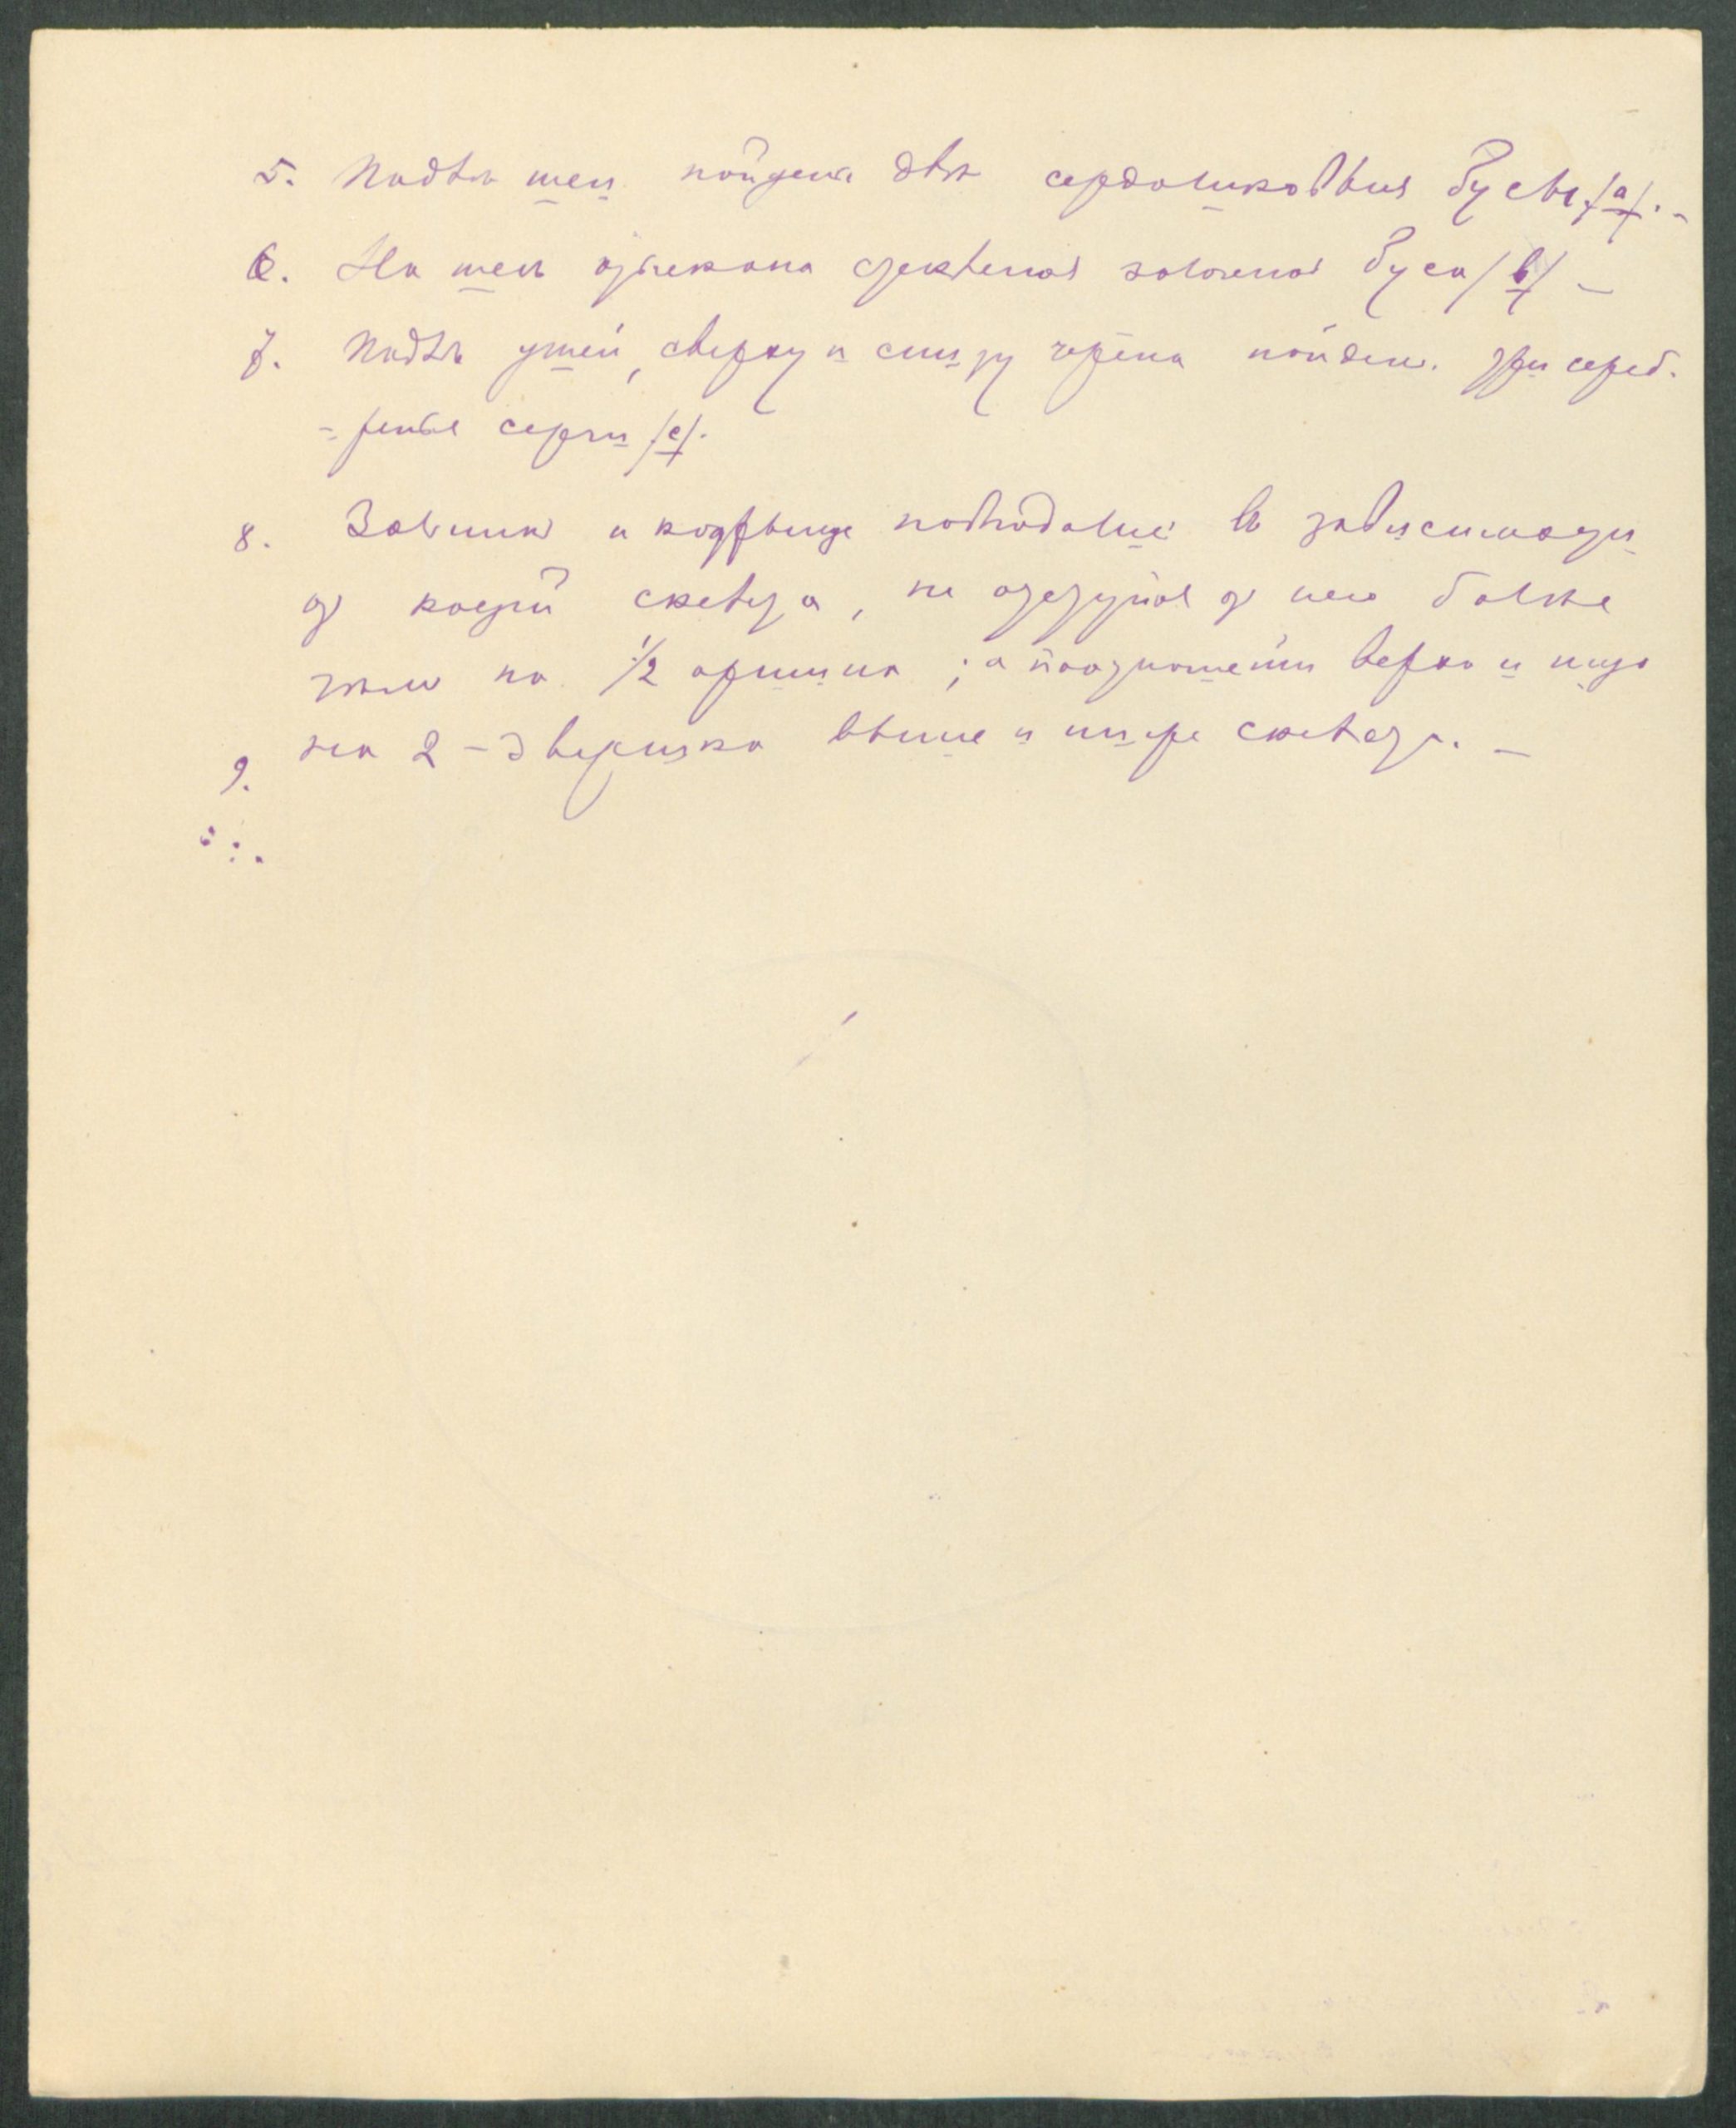 5. Подлѣ шеи найдены двѣ сердоликовыя бусы /a/. -
6. На шеѣ отыскана стекляная золоченая буса /b/ -
7. Подлѣ ушей, сверху и снизу черепа найдены три сереб-
- реныя серьги /c/.
8. и въ зависимости
отъ костей скелета, не отступая отъ него болѣе
чѣмъ на 1/2 аршина ; а по отношенію верха и низа
на 2 - 3 вершка выше и ниже скелета. -
9.